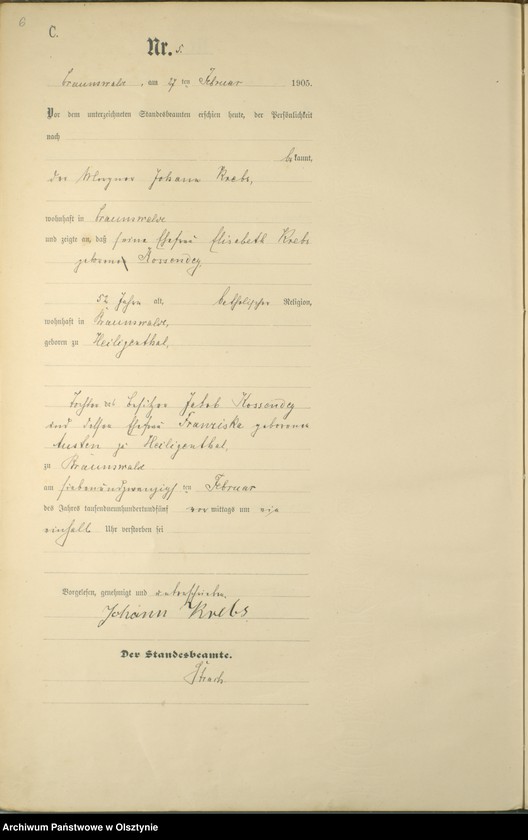 6
C.
Nr. 5
Braunswalde, am 27 ten Februar 1905.
Vor dem unterzeichneten Standesbeamten erschien heute, der Persönlichkeit
nach
bekannt,
der Johann Krebs,
wohnhaft in Braunswalde
und zeigte an, daß seine Ehefrau Elisabeth Krebs
geborene Kossendey
52 Jahre alt, katholischer Religion,
wohnhaft in Braunswalde,
geboren zu Heiligenthal,
Tochter des Besitzer Jakob Kossendey
und dessen Ehefrau Franziska geborenen
Austen zu Heiligenthal,
zu Braunswalde
am siebenundzwanzigsten Februar
des Jahres tausendneunhundertundfünf vormittags um ein
einhalb Uhr verstorben sei
Vorgelesen, genehmigt und unterschrieben.
Johann Krebs
Der Standesbeamte.
Archiwum Państwowe w Olsztynie